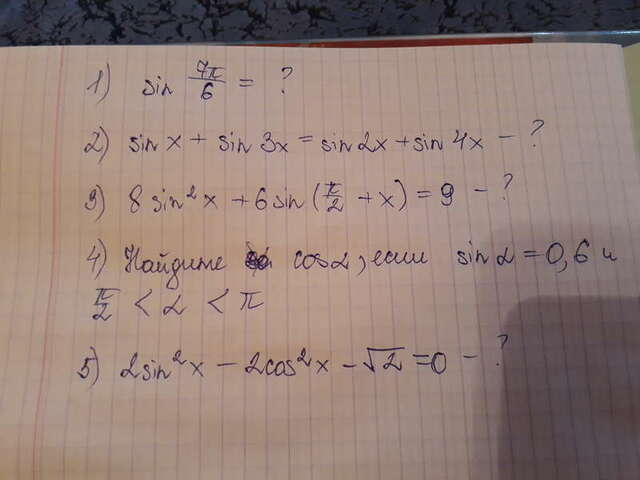 1) sin 7π/6 = ?
2) sin x + sin 3x = sin 2x + sin 4x - ?
3) 8 sin² x + 6 sin (π/2 + x) = 9 - ?
4) Найдите cos α, если sin α = 0,6 и
π/2 < α < π
5) 2 sin² x - 2 cos² x - √2 = 0 - ?